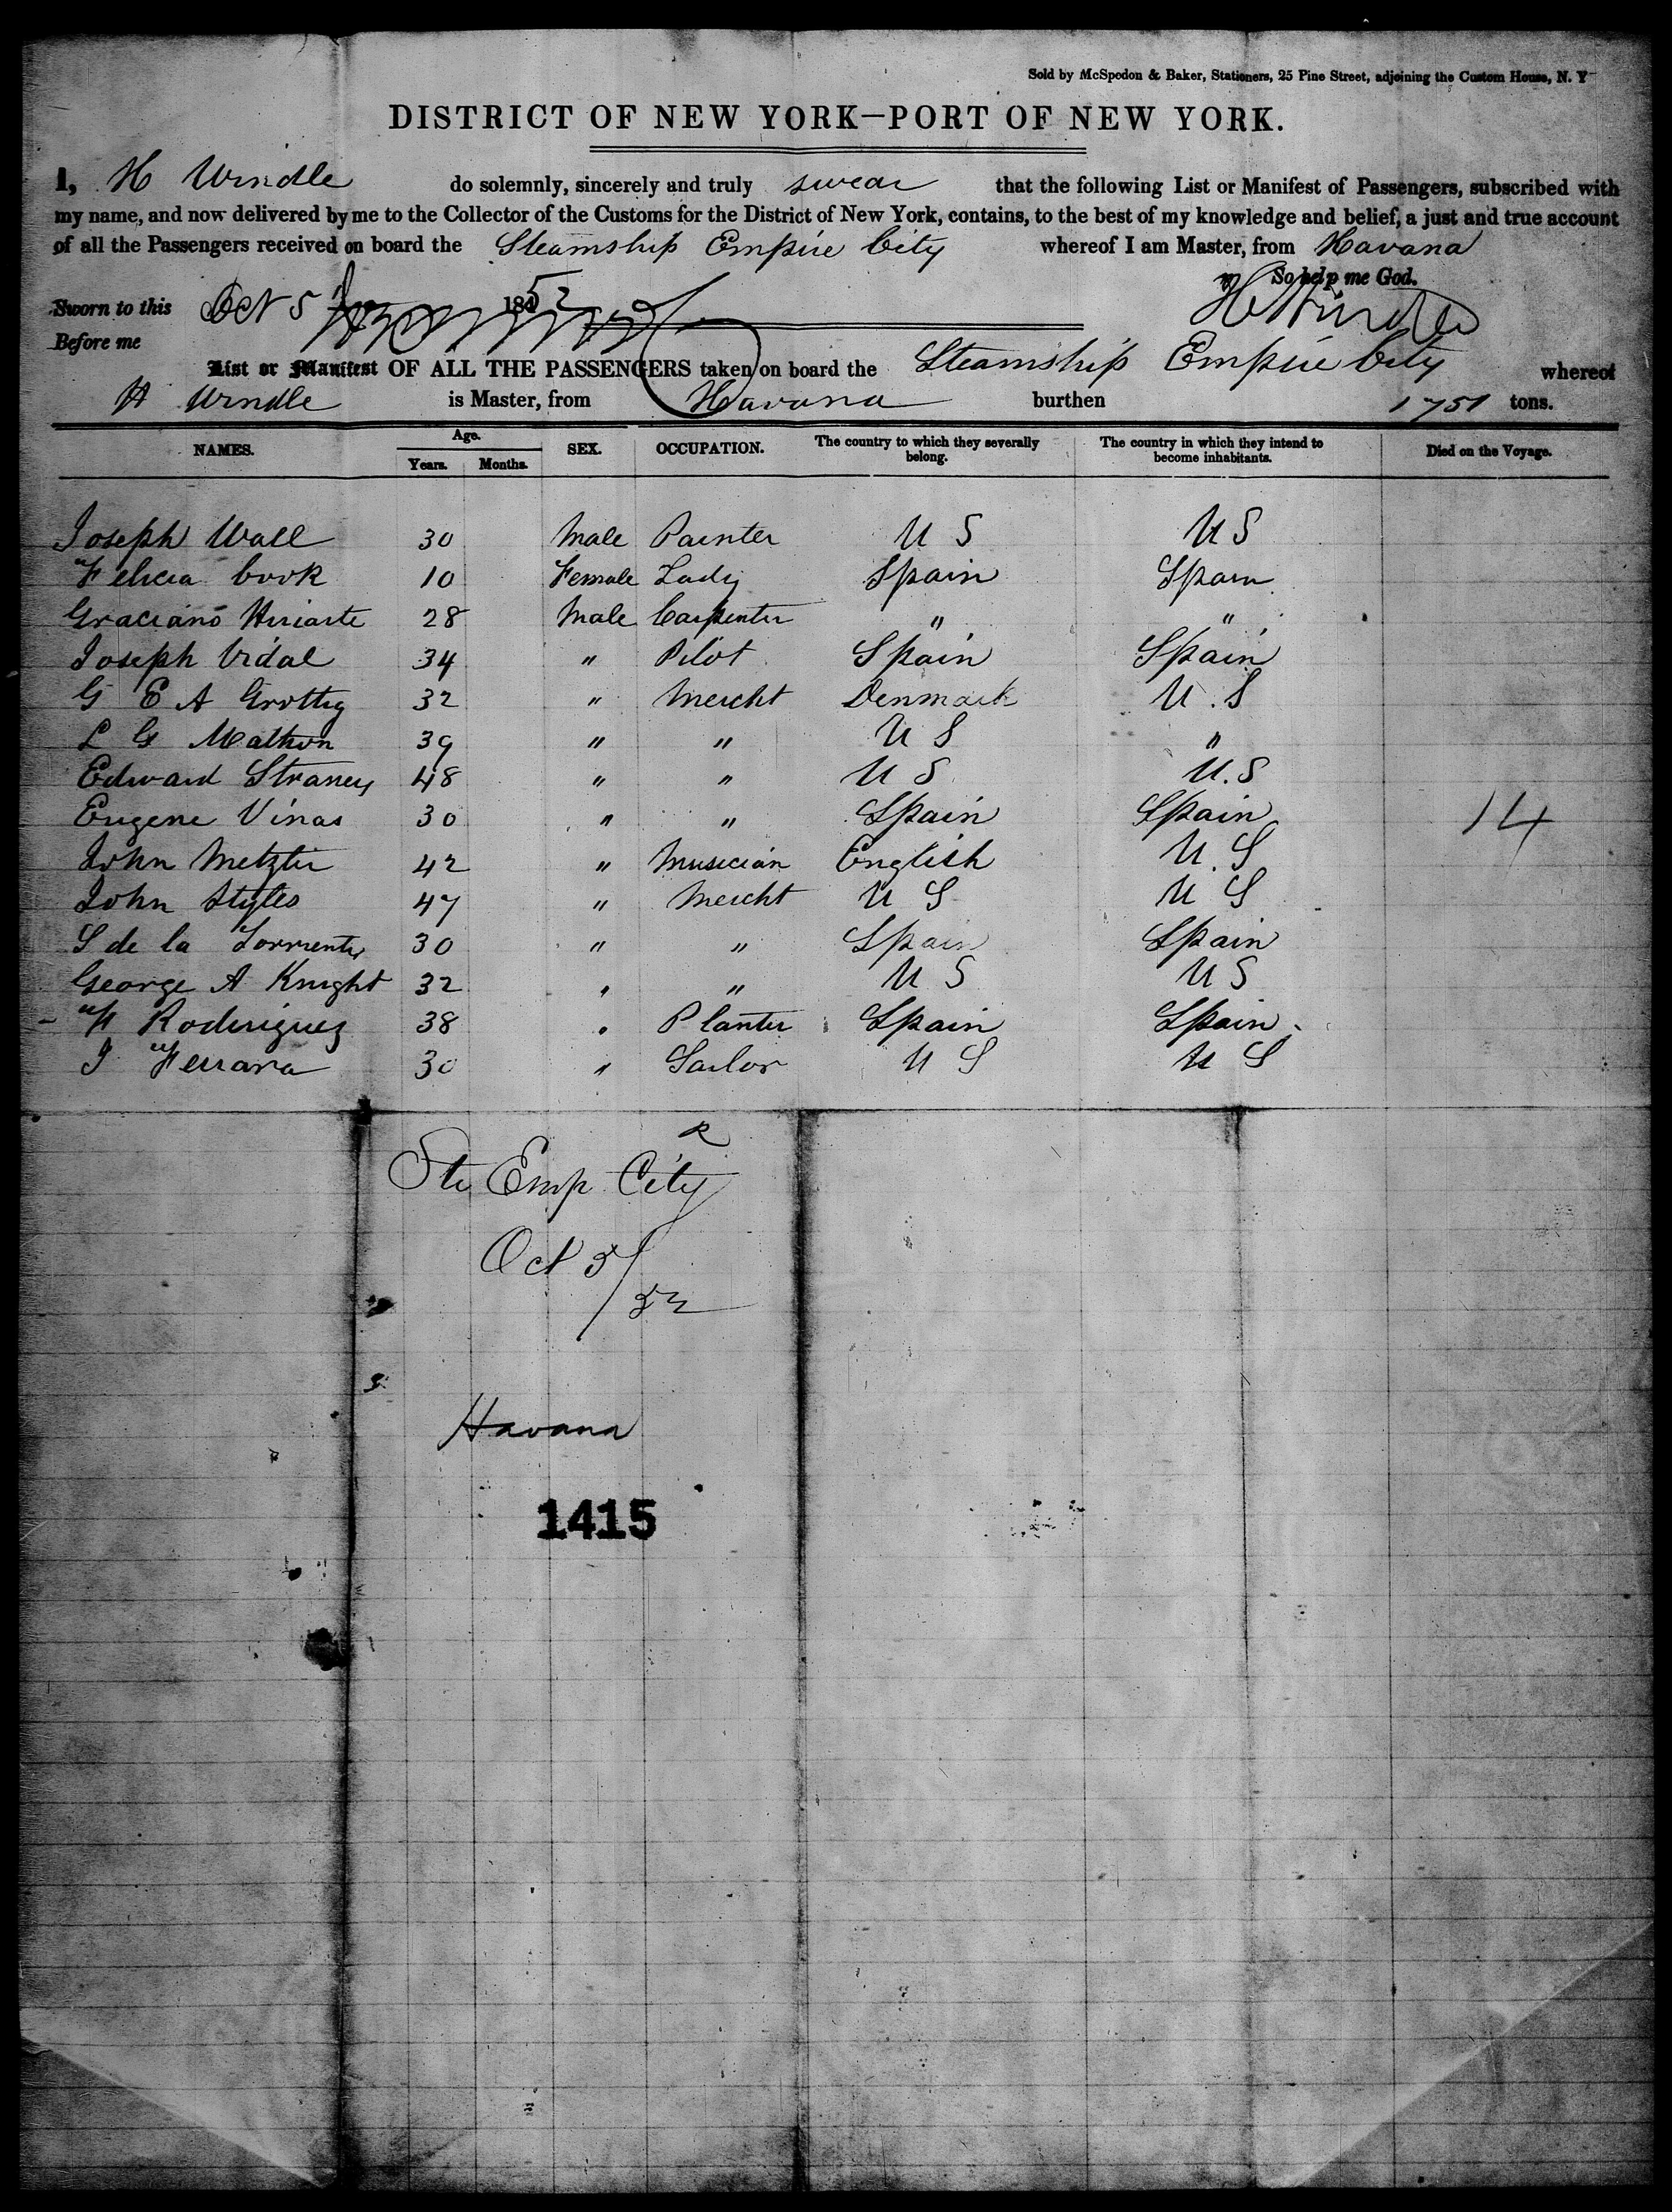 Sold by McSpedon & Baker, Stationers, 25 Pine Street, adjoining the Custom House, N. Y
DISTRICT OF NEW YORK—PORT OF NEW YORK.
I, H Windle do solemnly, sincerely and truly swear that the following List or Manifest of Passengers, subscribed with
my name, and now delivered by me to the Collector of the Customs for the District of New York, contains, to the best of my knowledge and belief, a just and true account
of all the Passengers received on board the Steamship Empire City whereof I am Master, from Havana
So help me God.
Sworn to this Oct 5 1852 H Windle
Before me
List or Manifest OF ALL THE PASSENGERS taken on board the Steamship Empire City whereof
H Windle is Master, from Havana burthen 1751 tons.
NAMES. Age. Years. Months. SEX. OCCUPATION. The country to which they severally belong. The country in which they intend to become inhabitants. Died on the Voyage.
Joseph Wall 30 Male Painter U S U S
Felicia Cook 10 Female Lady Spain Spain
Graciano Huriarte 28 Male Carpenter " "
Joseph Vidal 34 " Pilot Spain Spain
G E A Grottig 32 " Mercht Denmark U.S
L G Mathon 39 " " U S "
Edward Straney 48 " " U S U.S
Eugene Vinas 30 " " Spain Spain 14
John Metzler 42 " Musician English U.S
John Styles 47 " Mercht U S U S
S de la Torriente 30 " " Spain Spain
George A Knight 32 " " U S U S
F Roderiguez 38 " Planter Spain Spain
J Ferrara 30 " Sailor U S U S
R
Ste Emp City
Oct 5/52
Havana
1415